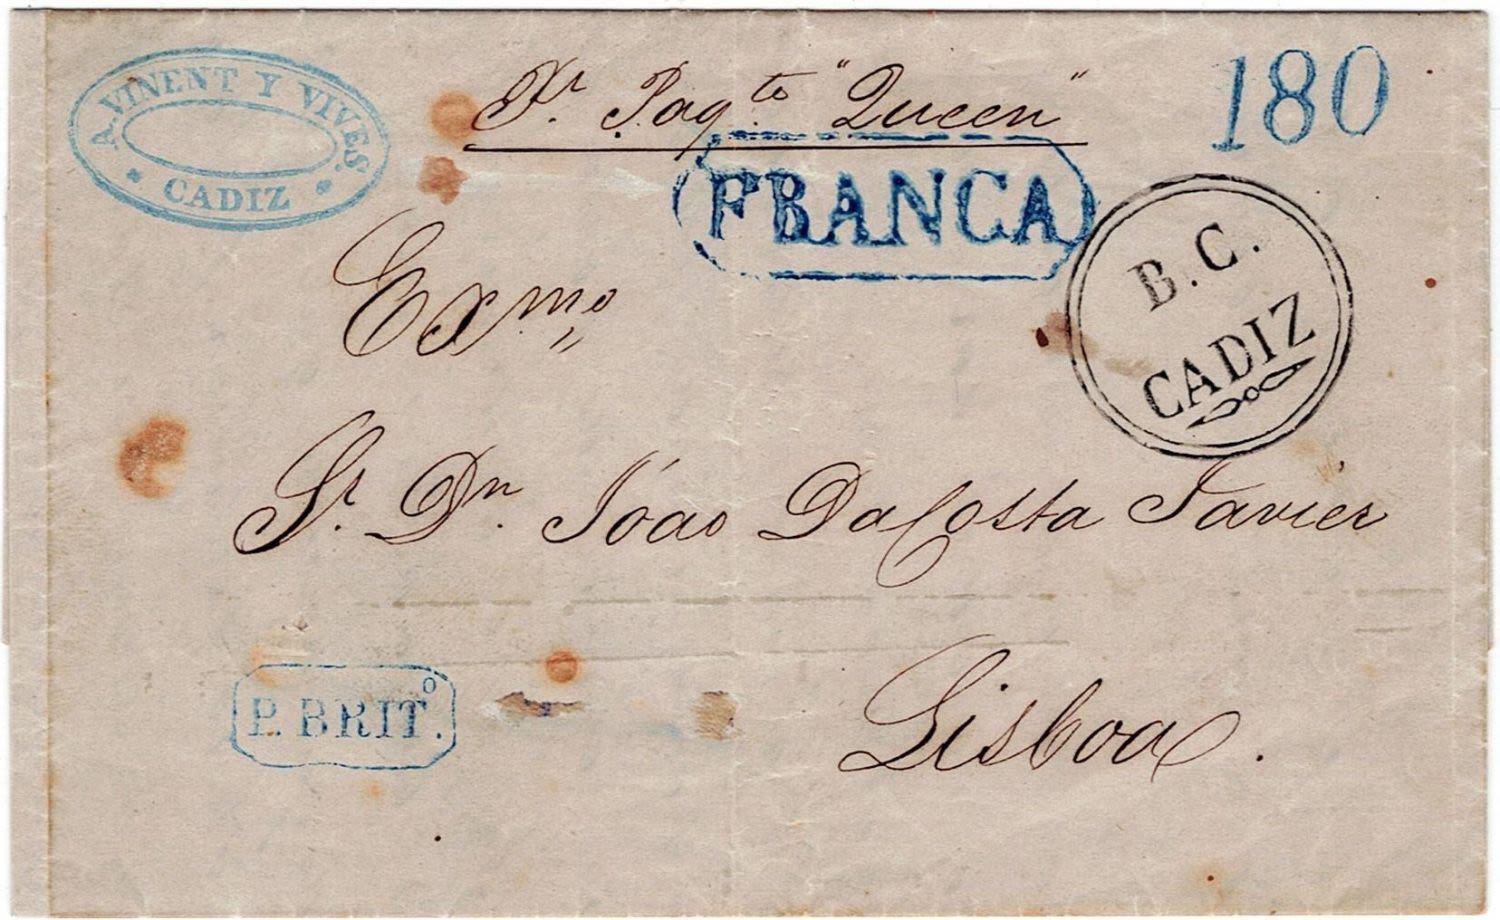 A. VINENT Y VIVES.
* CADIZ *
Pr. Paqte. "Queen"
180
FRANCA
B. C.
CADIZ
Exmo
Sr. Dn. Jóao DaCosta Javier
P. BRITo.
Lisboa.